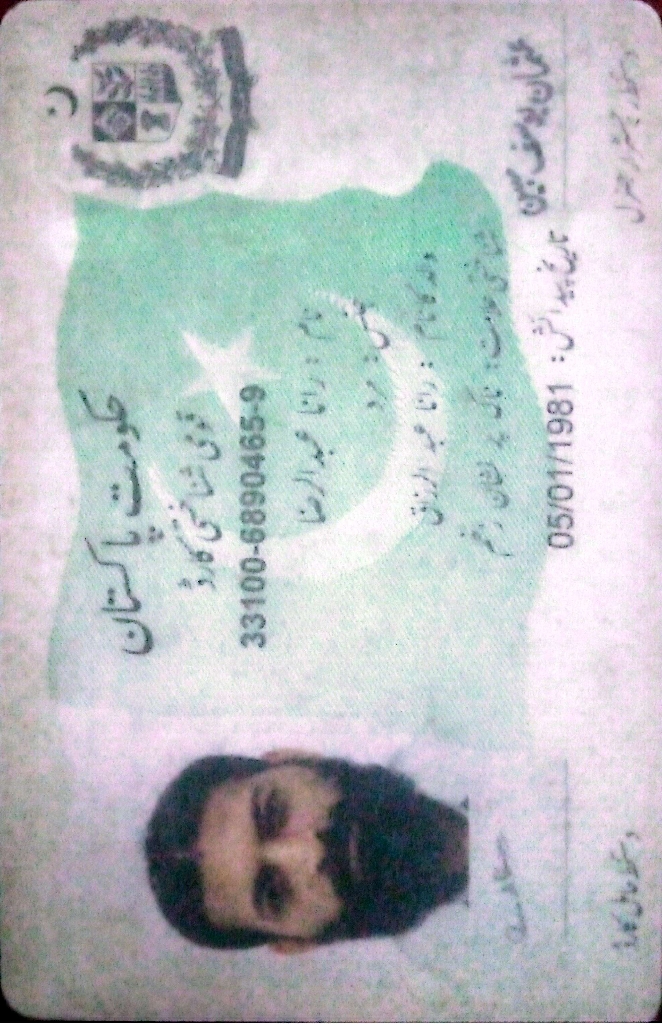 حکومت پاکستان
قومی شناختی کارڈ
33100-6890465-9
نام : رانا عبدالرضا
جنس : مرد
والد کا نام : رانا عبدالرزاق
شناختی علامت : ناک پر نشان زخم
تاریخ پیدائش : 05/01/1981
عثمان یوسف مبین
دستخط رجسٹرار جنرل
دستخط حامل کارڈ